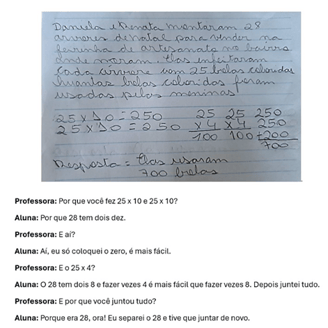 Daniela e Renata montaram 28
arvores de natal para vender na
feirinha de artesanato no bairro
onde moram. Elas enfeitaram
cada arvore com 25 bolas coloridas
Quantas bolas coloridas foram
usadas pelas meninas?
25 x 10 = 250 25 25 250
25 x 10 = 250 x 4 x 4 250
100 100 +200
700
Resposta = Elas usaram
700 bolas
Professora: Por que você fez 25 x 10 e 25 x 10?
Aluna: Por que 28 tem dois dez.
Professora: E aí?
Aluna: Aí, eu só coloquei o zero, é mais fácil.
Professora: E o 25 x 4?
Aluna: O 28 tem dois 8 e fazer vezes 4 é mais fácil que fazer vezes 8. Depois juntei tudo.
Professora: E por que você juntou tudo?
Aluna: Porque era 28, ora! Eu separei o 28 e tive que juntar de novo.